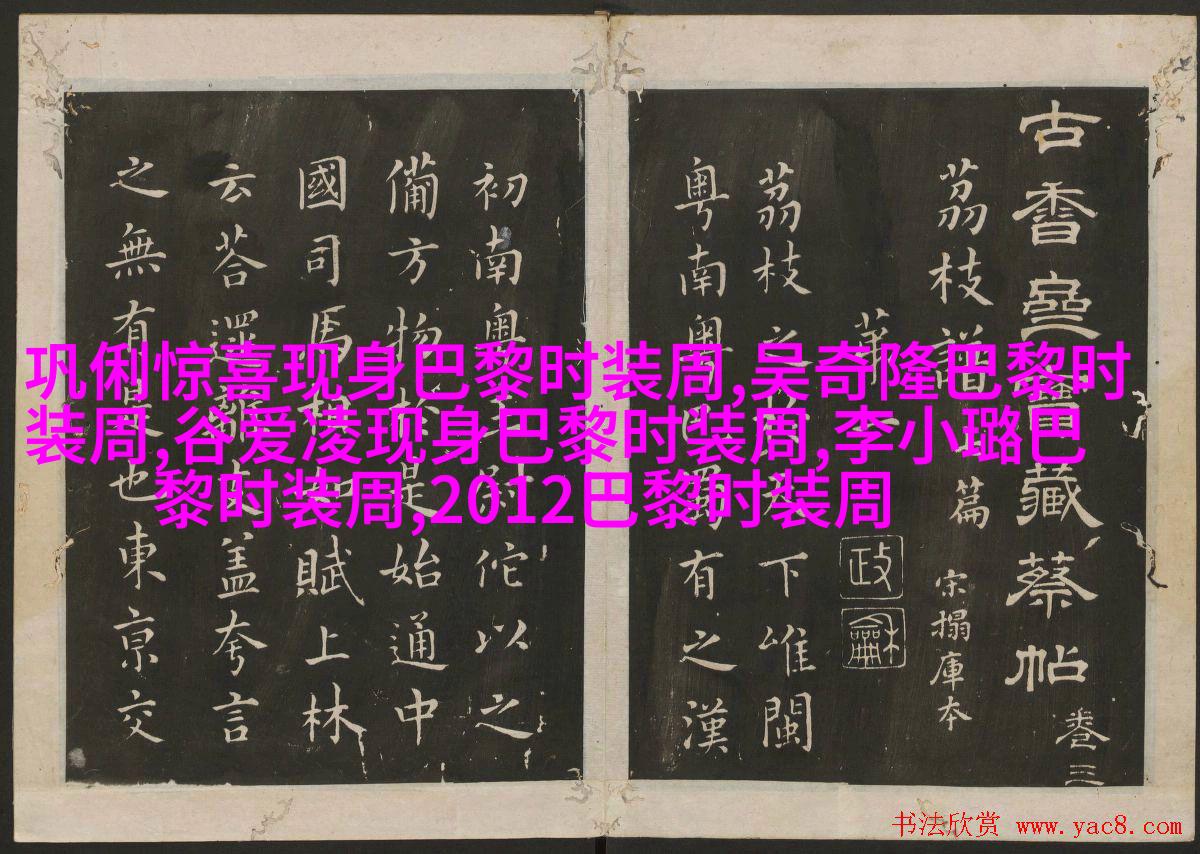 古香齋寶藏蔡帖
卷三
茘枝譜
篇
宋搨庫本
第
政龢
茘枝之於天下唯閩
粵南粵巴蜀有之漢
初南粵王尉佗以之
備方物於是始通中
國司馬相如賦上林
云荅遝離支盖夸言
之無有是也東京交
巩俐惊喜现身巴黎时装周,吴奇隆巴黎时
装周,谷爱凌现身巴黎时装周,李小璐巴
黎时装周,2012巴黎时装周
书法欣赏 www.yac8.com